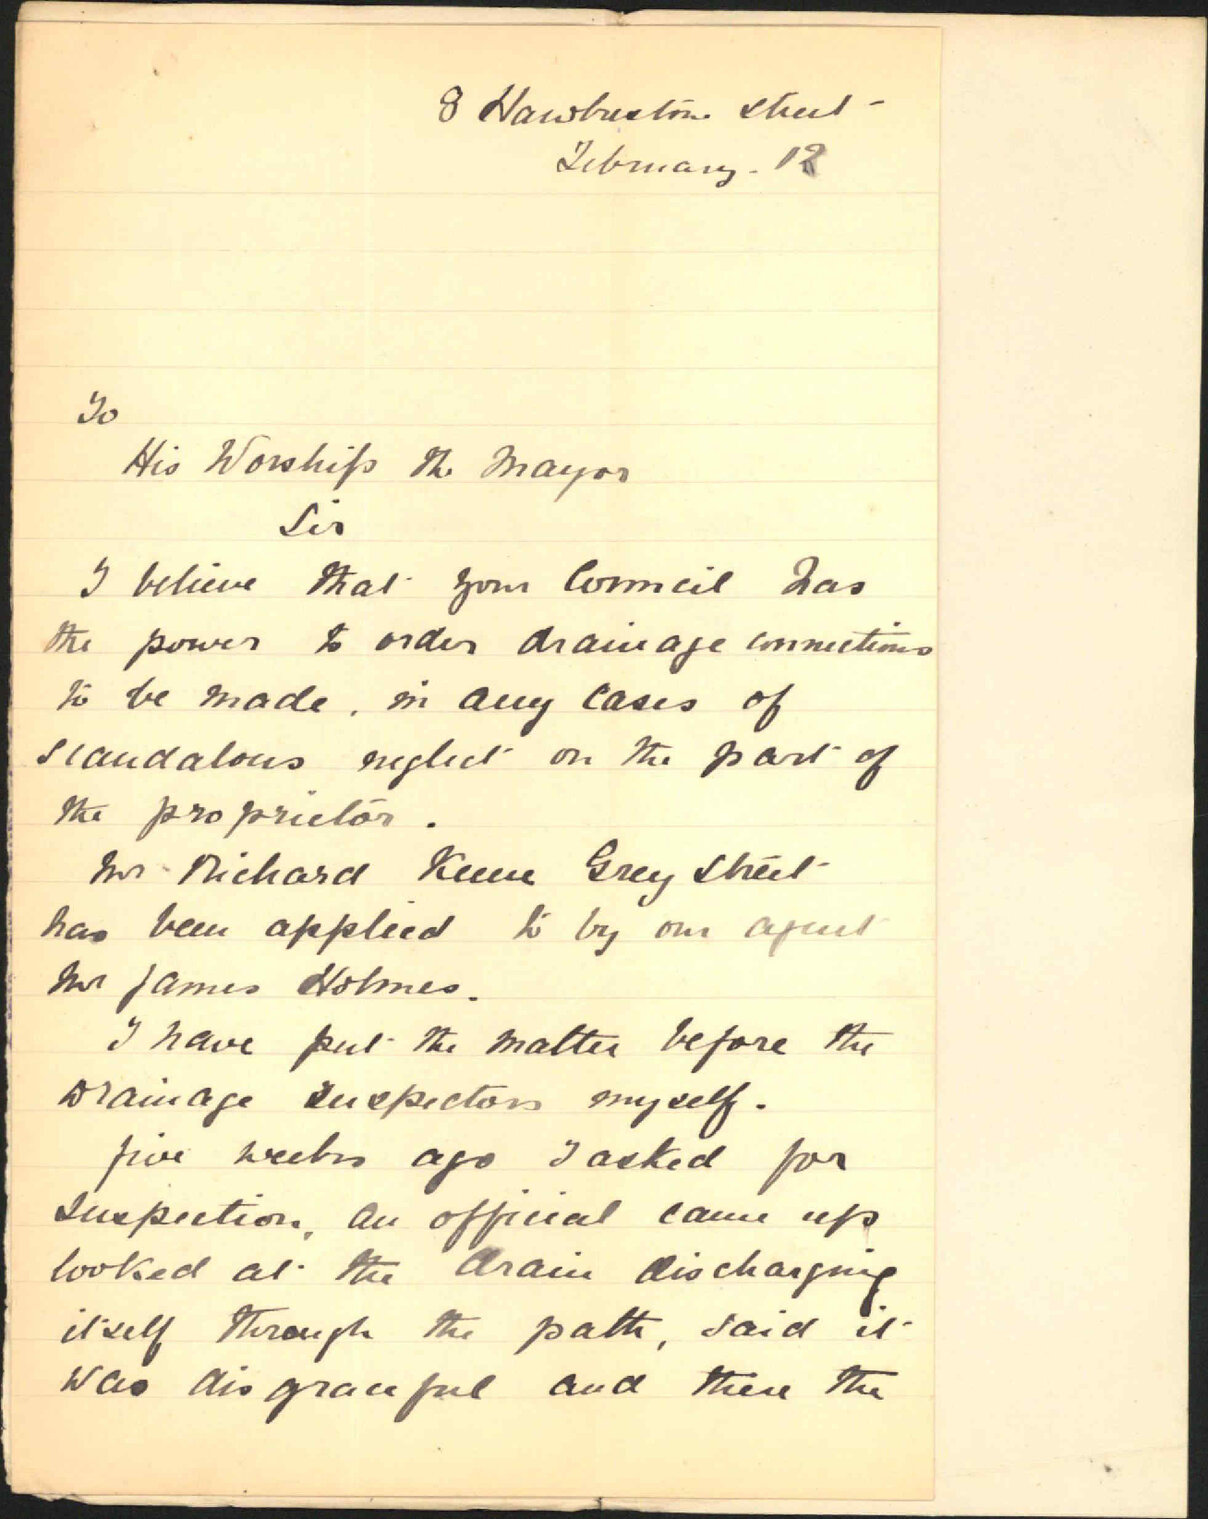 8 Hawkestone Street
February. 12
To
His Worship the Mayor
Sir
I believe that your Council has
the power to order drainage connections
to be made, in any cases of
scandalous neglect on the part of
the proprietor.
Mr Richard Keene Grey Street
has been applied to by our agent
Mr James Holmes.
I have put the matter before the
Drainage Inspectors myself.
Five weeks ago I asked for
Inspection, an official came up
looked at the drain discharging
itself through the path, said it
was disgraceful and there the